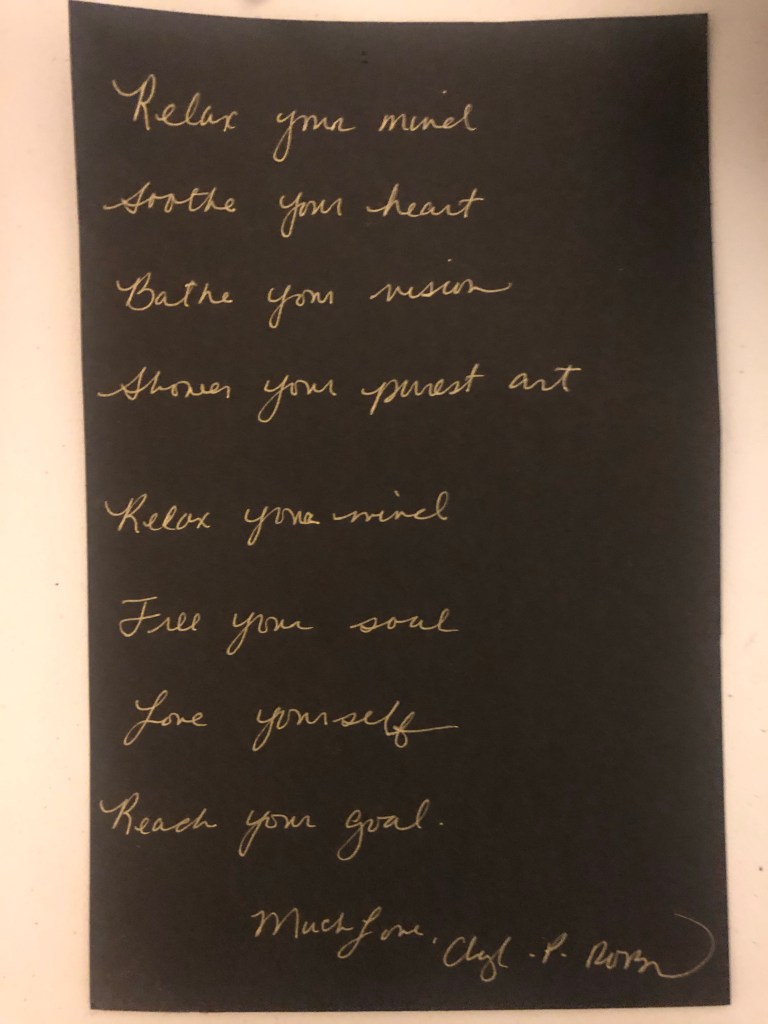 Relax your mind
Soothe your heart
Bathe your vision
Shower your purest art
Relax your mind
Free your soul
Love yourself
Reach your goal.
Much Love,
P.